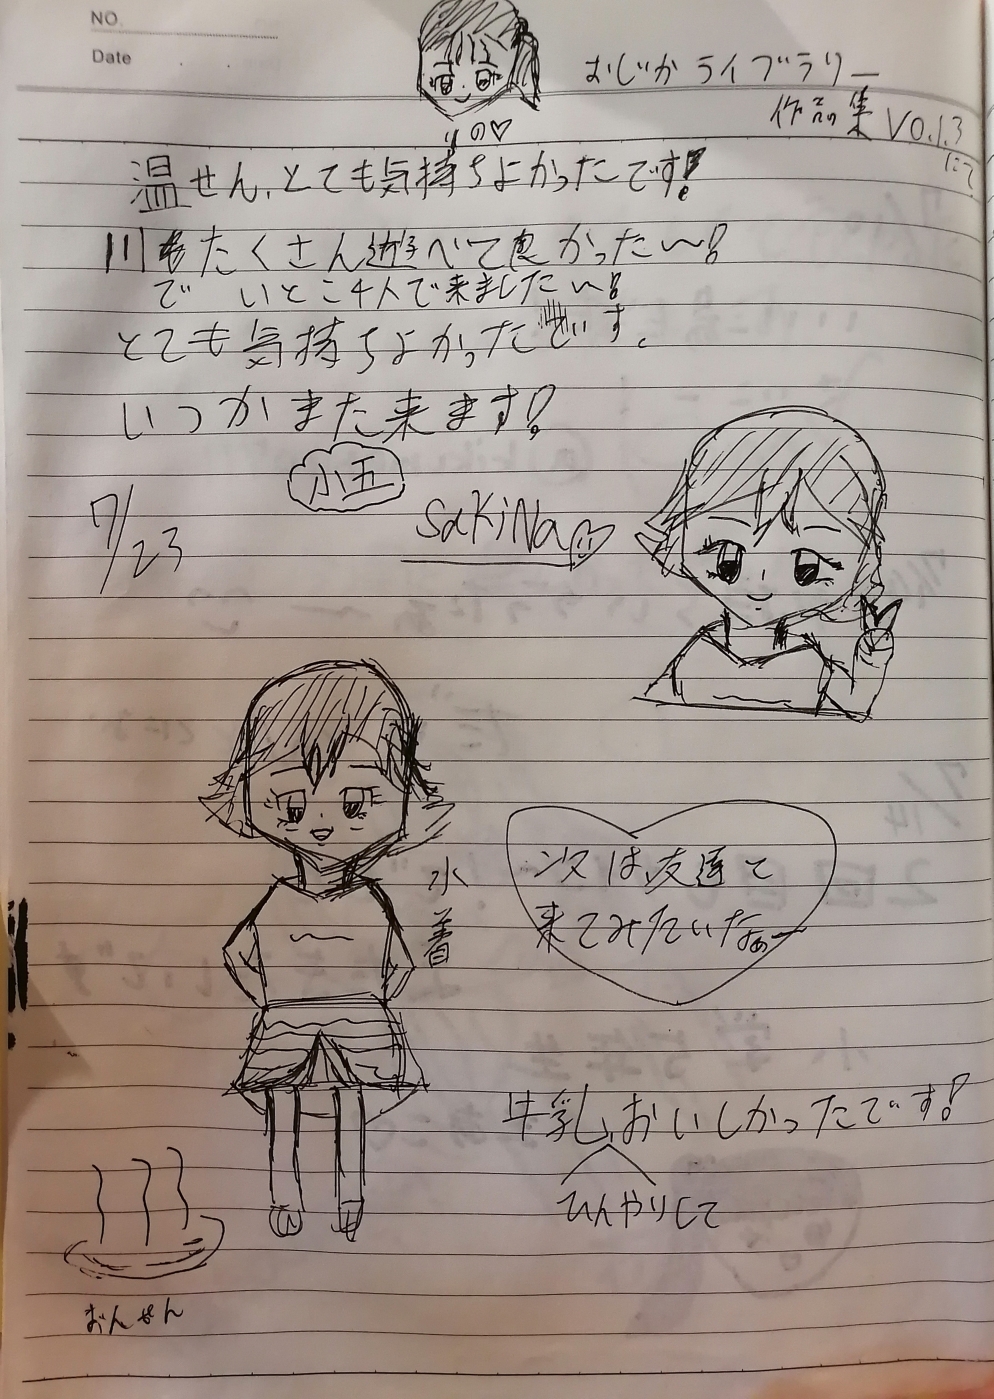 NO.
Date
おじか ライブラリー
作品集 VO.1.3
にて
りの♡
温せん、とても気持ちよかったです!
川もたくさん遊べて良かった〜!
で いとこ4人で来ました〜!
とても気持ちよかったです。
いつかまた来ます!
小五
7/23
SaKiNa
水着
次は友達と
来てみたいなぁー
牛乳、おいしかったです!
ひんやりして
おんせん